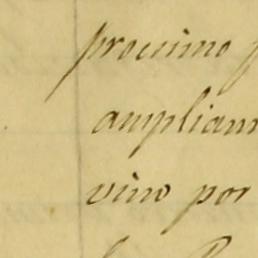 procsimo
ampliam
vino por